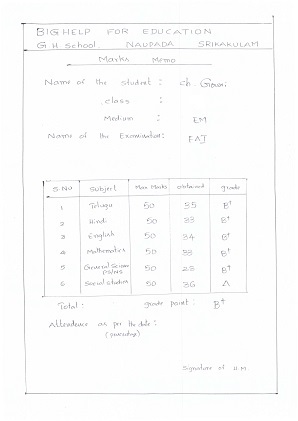 BIGHELP FOR EDUCATION
G H School. NAUPADA SRIKAKULAM
Marks Memo
Name of the student : ch. Gowri
class :
Medium : EM
Name of the Examination: FAI
S.No Subject Max Marks obtained grade
1 Telugu 50 35 B+
2 Hindi 50 33 B+
3 English 50 34 B+
4 Mathematics 50 33 B+
5 General Science 50 28 B+
PS/NS
6 Social studies 50 36 A
Total : grade point : B+
Attendence as per the date :
Signature of H.M.